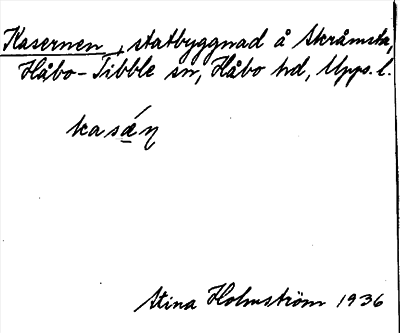 Kasernen, statbyggnad å Skråmsta,
Håbo-Tibble sn, Håbo hd, Upps. l.
kasä́ṇ
Stina Holmström 1936